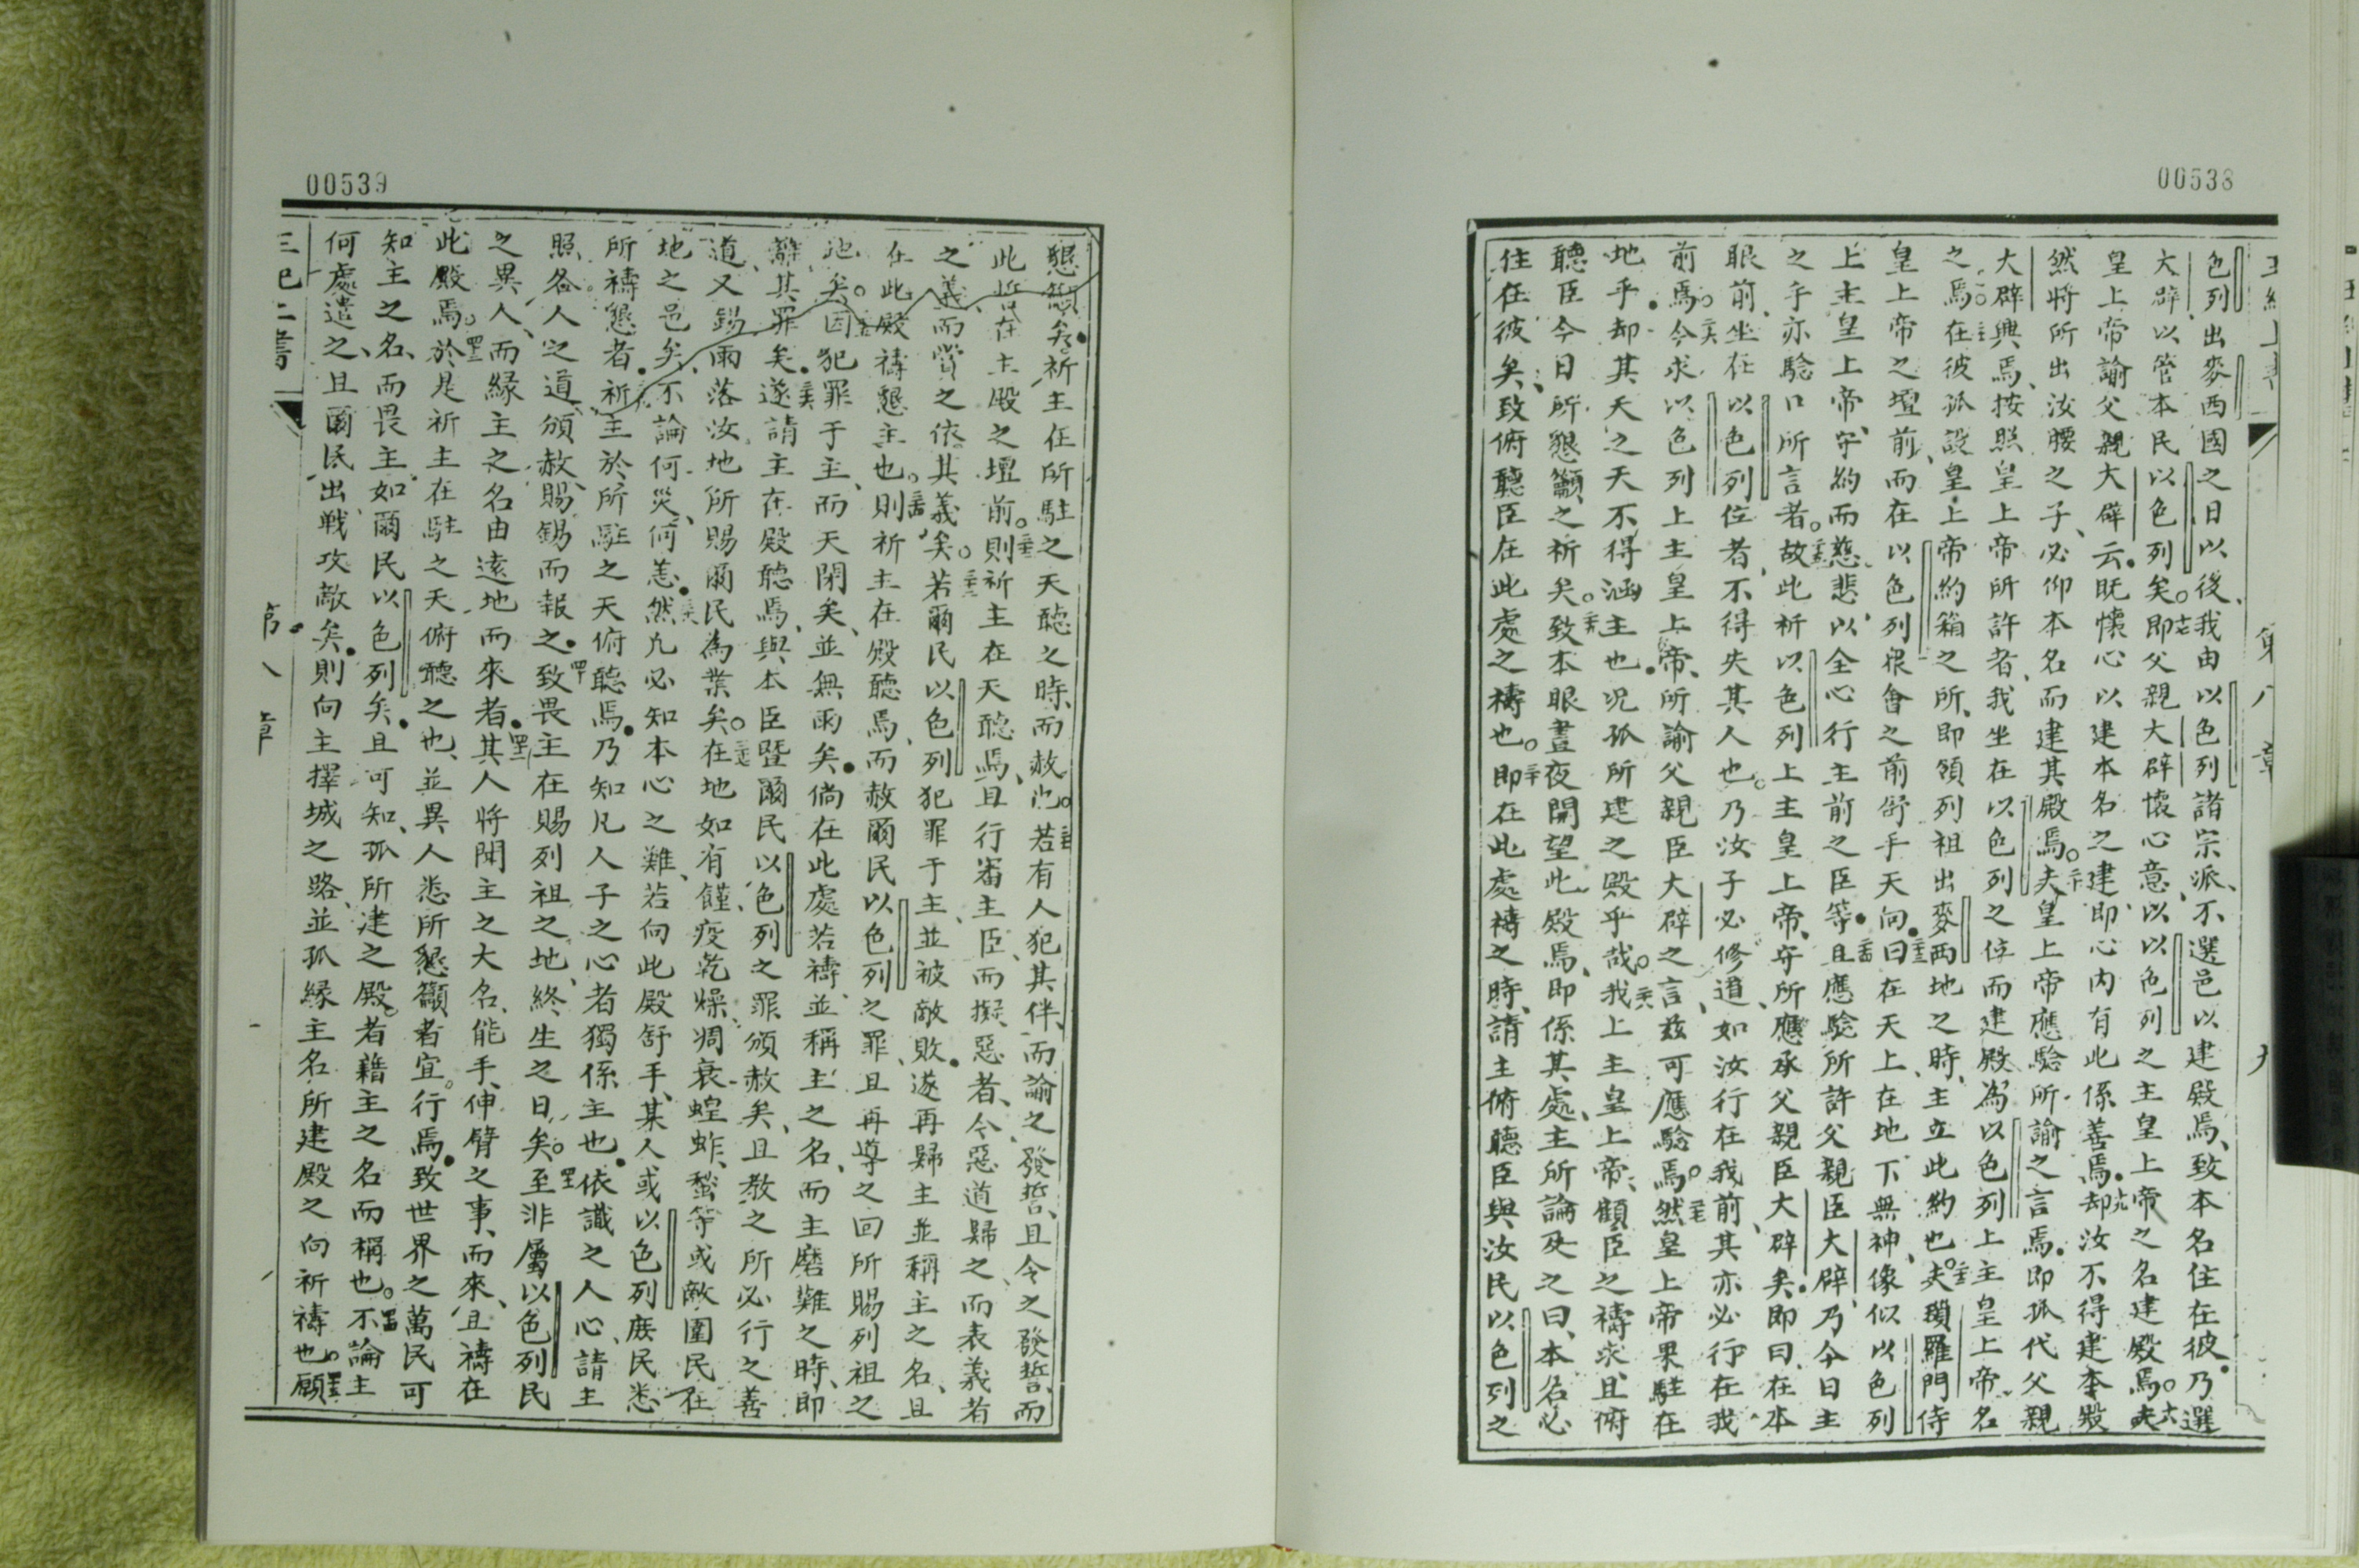 00538
色列出麥西國之日以後、我由以色列諸宗派、不選邑以建殿焉、致本名住在彼。乃選
大辟以管本民以色列矣。十七即父親大辟懷心意、以以色列之主皇上帝之名建殿焉。十八夫
皇上帝諭父親大辟云。既懷心以建本名之建、即心內有此係善焉。十九却汝不得建本殿
然將所出汝腰之子、必仰本名而建其殿焉。二十夫皇上帝應騐所諭之言焉。即孤代父親
大辟興焉、按照皇上帝所許者、我坐在以色列之位而建殿為以色列上主皇上帝名
之焉。二一在彼孤設皇上帝約箱之所、即領列祖出麥西地之時、主立此約也。二二夫瑣羅門侍
皇上帝之壇前、而在以色列衆會之前舒手天向。二三曰在天上、在地下無神、像似以色列
上主皇上帝、守約而慈悲、以全心行主前之臣等。二四且應騐所許父親臣大辟、乃今日主
之手亦騐口所言者。二五故此祈以色列上主皇上帝、守所應承父親臣大辟矣。即曰、在本
眼前、坐在以色列位者、不得失其人也。乃汝子必修道、如汝行在我前、其亦必行在我
前焉。二六今求以色列上主皇上帝、所諭父親臣大辟之言、茲可應騐焉。二七然皇上帝果駐在
地乎。却其天之天不得涵主也。况孤所建之殿乎哉。二八我上主皇上帝、顧臣之禱求、且俯
聽臣今日所懇籲之祈矣。二九致本眼晝夜開望此殿焉、即係其處、主所論及之曰、本名必
住在彼矣、致俯聽臣在此處之禱也。三十即在此處禱之時、請主俯聽臣與汝民以色列之
第八章
九
00539
懇懃矣。祈主在所駐之天聽之時、而赦也。三一若有人犯其伴、而論之、發誓、且令之發誓、而
此誓在主殿之壇前。三二則祈主在天聽焉、且行審主臣、而擬惡者、令惡道歸之、而表義者
之義、而賞之依其義矣。三三若爾民以色列犯罪于主、並被敵敗。遂再歸主並稱主之名、且
在此殿禱懇主也。三四則祈主在殿聽焉、而赦爾民以色列之罪、且再導之回所賜列祖之
地矣。三五因犯罪于主、而天閉矣、並無雨矣。倘在此處若禱、並稱主之名、而主磨難之時、即
離其罪矣。三六遂請主在殿聽焉、與本臣曁爾民以色列之罪頒赦矣、且教之所必行之善
道、又錫雨落汝地所賜爾民為業矣。三七在地如有饉、疫、乾燥、凋衰、蝗蚱、螯等、或敵圍民在
地之邑矣、不論何災、何恙。三八然凡必知本心之難、若向此殿舒手、某人或以色列庶民悉
所禱懇者。三九祈主於所駐之天俯聽焉。乃知凡人子之心者獨係主也。依識之人心、請主
照各人之道、頒赦、賜錫而報之。四十致畏主在賜列祖之地、終生之日矣。四一至非屬以色列民
之異人、而緣主之名、由遠地而來者。四二其人將聞主之大名、能手、伸臂之事、而來、且禱在
此殿焉。四三於是祈主在駐之天俯聽之也、並異人悉所懇籲者宜行焉。致世界之萬民可
知主之名、而畏主如爾民以色列矣。且可知、孤所建之殿者藉主之名而稱也。四四不論主
何處遣之、且爾民出戰攻敵矣。則向主擇城之路、並孤緣主名所建殿之向祈禱也。四五願
第八章